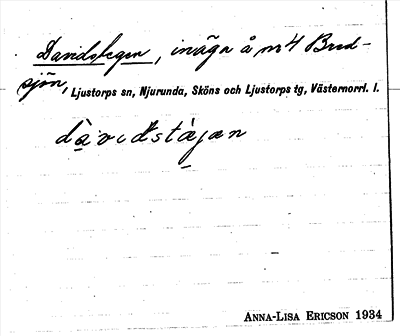 Davidstegen, inäga å nr 4 Bred-
sjön, Ljustorps sn, Njurunda, Sköns och Ljustorps tg, Västernorrl. l.
dàvidstàjan
ANNA-LISA ERICSON 1934